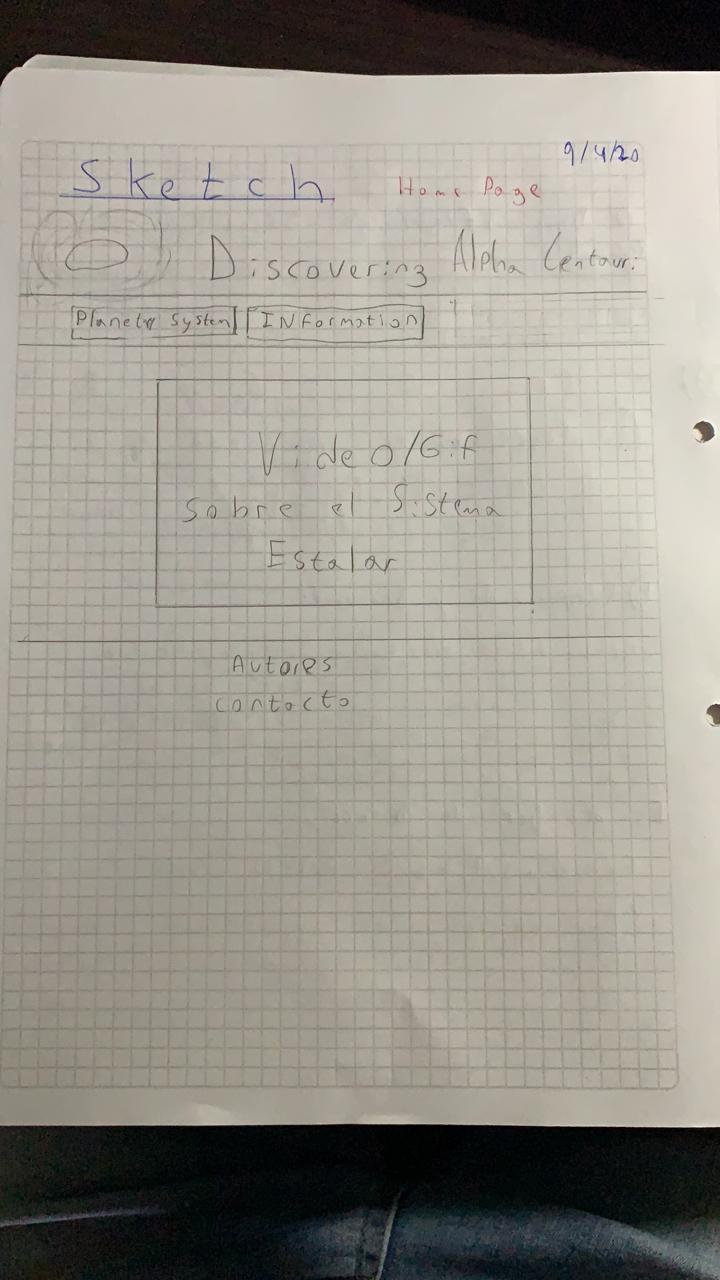 9/4/20
Sketch Home Page
Discovering Alpha Centauri
Planety System INFormation
Video/Gif
Sobre el Sistema
Estalar
Autores
contacto